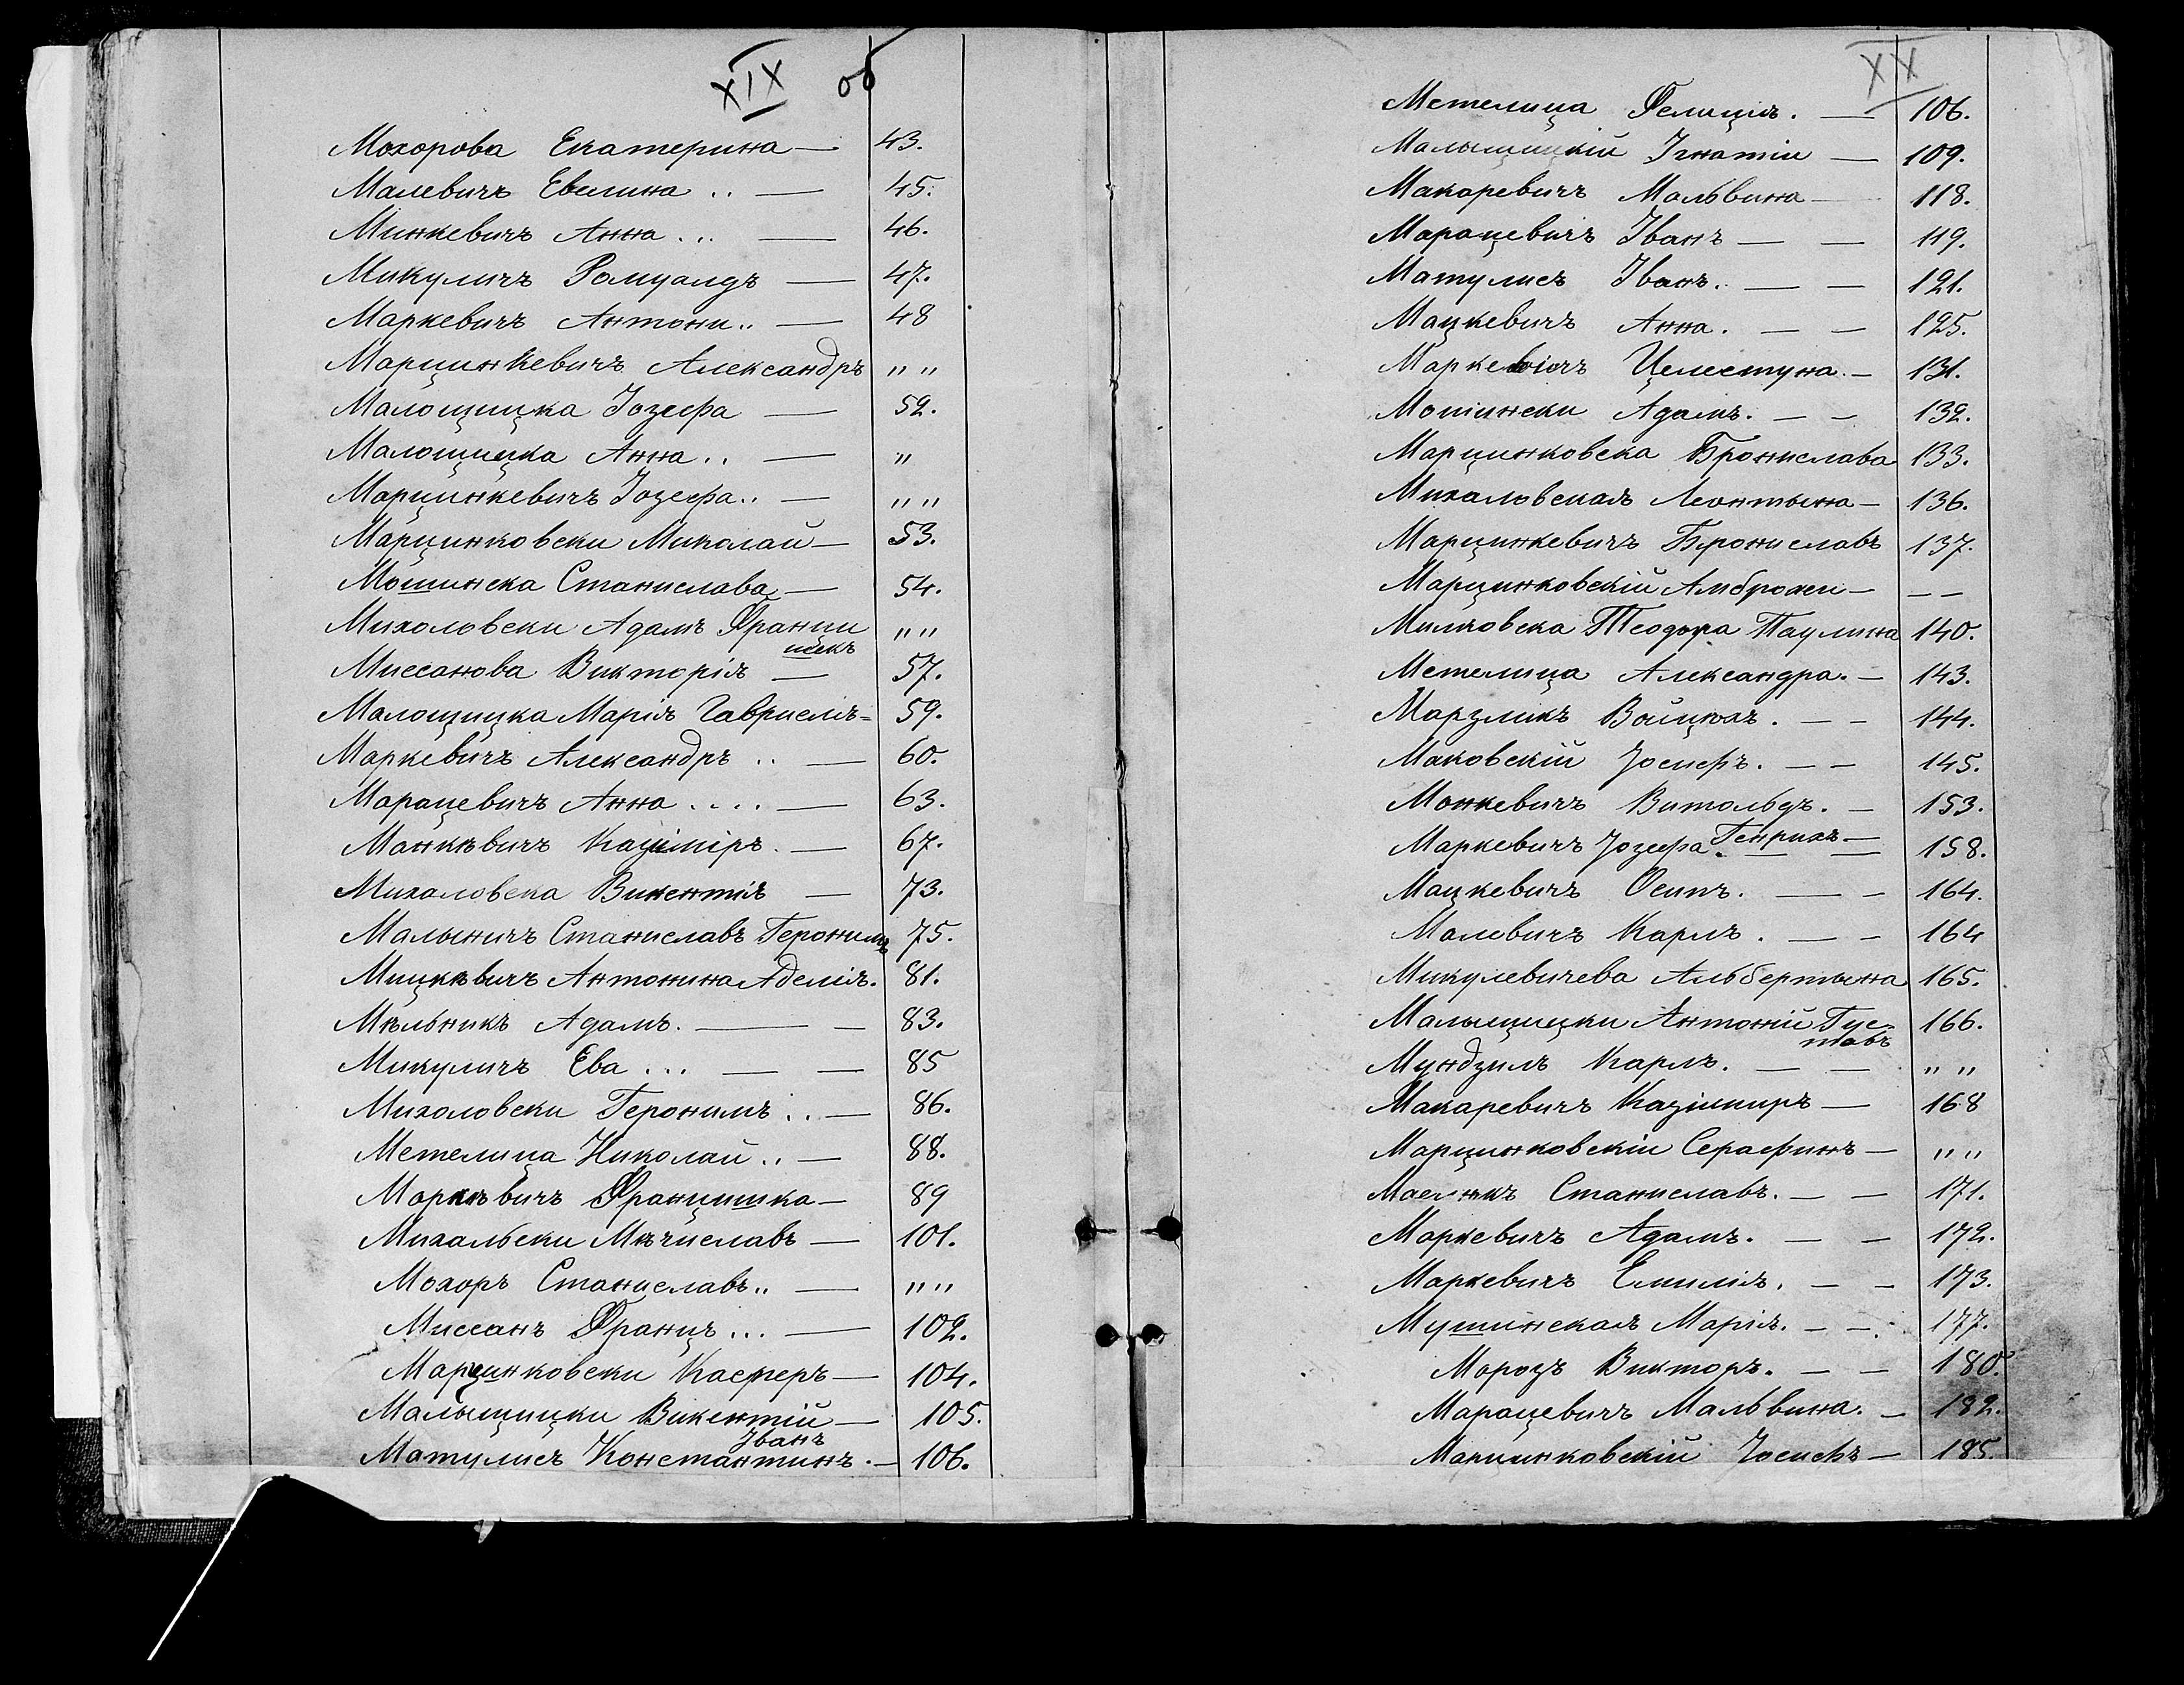 XIX об
Мохорова Екатерина — 43.
Малевичъ Евелина .. — 45.
Минкевичъ Анна ... — 46.
Микуличъ Ромуалдъ — 47.
Маркевичъ Антони .. — 48
Марцинкевичъ Александръ " "
Малощицка Іозефа — 52.
Малощицка Анна .. — "
Марцинкевичъ Іозефа .. — " "
Марцинковски Миколай — 53.
Мошинска Станислава — 54.
Михоловски Адамъ Франци " "
шекъ
Миссанова Викторія — 57.
Малощицка Марія Габриелія = 59.
Маркевичъ Александръ .. — 60.
Марацевичъ Анна .... — 63.
Манкѣвичъ Казиміръ. — 67.
Михаловска Викентія — 73.
Малыничъ Станиславъ Геронимъ 75.
Мицкѣвичъ Антонина Аделія. 81.
Мѣльникъ Адамъ. — — 83.
Микуличъ Ева ... — — 85
Михоловски Геронимъ .. — 86.
Метелица Николай .. — 88.
Маркѣвичъ Францишка — 89
Михальски Мѣчиславъ — 101.
Мохоръ Станиславъ .. — " "
Миссанъ Францъ ... — 102.
Марцинковски Касперъ — 104.
Малыщицки Викентій — 105.
Іванъ
Матулисъ Константинъ. — 106.
XX
Метелица Фелиція. — 106.
Малыщицкій Игнатій — 109.
Макаревичъ Мальвина — 118.
Марацевичъ Іванъ — — 119.
Матулисъ Іванъ. — — 121.
Мацкевичъ Анна. — — 125.
Маркевичъ Целестына. — 131.
Мошински Адамъ. — — 132.
Марцинковска Бронислава 133.
Михаловская Леонтына — 136.
Марцинкевичъ Брониславъ 137.
Марцинковскій Амброжи — — —
Милковска Теодора Паулина 140.
Метелица Александра. — 143.
Марзликъ Войцюхъ. — — 144.
Маковскій Іосифъ. — — 145.
Монкевичъ Витольдъ. — 153.
Маркевичъ Іозефа. Генрихъ — 158.
Мацкевичъ Осипъ. — — 164.
Малевичъ Карлъ. — — 164
Микулевичева Альбертына 165.
Малыщицки Антоній Гус- 166.
тавъ
Мундзиль Карлъ. — — " "
Макаревичъ Казімиръ — 168
Марцинковскій Серафинъ — " "
Станиславъ. — — 171.
Маркевичъ Адамъ. — — 172.
Маркевичъ Емилія. — — 173.
Мушинская Марія. — — 177.
Морозъ Викторъ. — — 180.
Марацевичъ Мальвина. — 182.
Марцинковскій Іосифъ — 185.